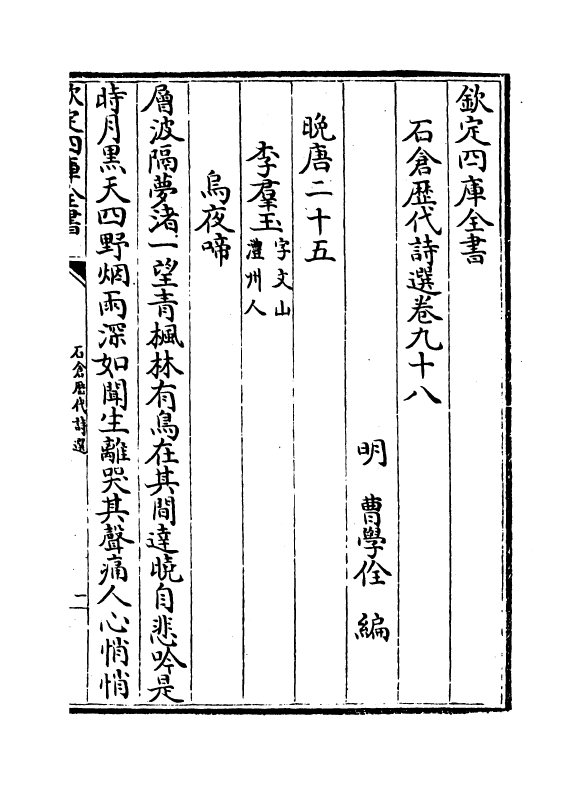 欽定四庫全書
石倉歴代詩選卷九十八
明　曹學佺　編
晩唐二十五
李羣玉字文山澧州人
烏夜啼
層波隔夢渚一望青楓林有鳥在其間達曉自悲吟是
時月黒天四野烟雨深如聞生離哭其聲痛人心悄悄
欽定四庫全書
石倉歴代詩選